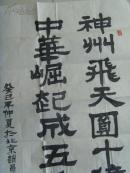 神州飛天圓十
中華崛起成五
癸巳年仲夏於北京